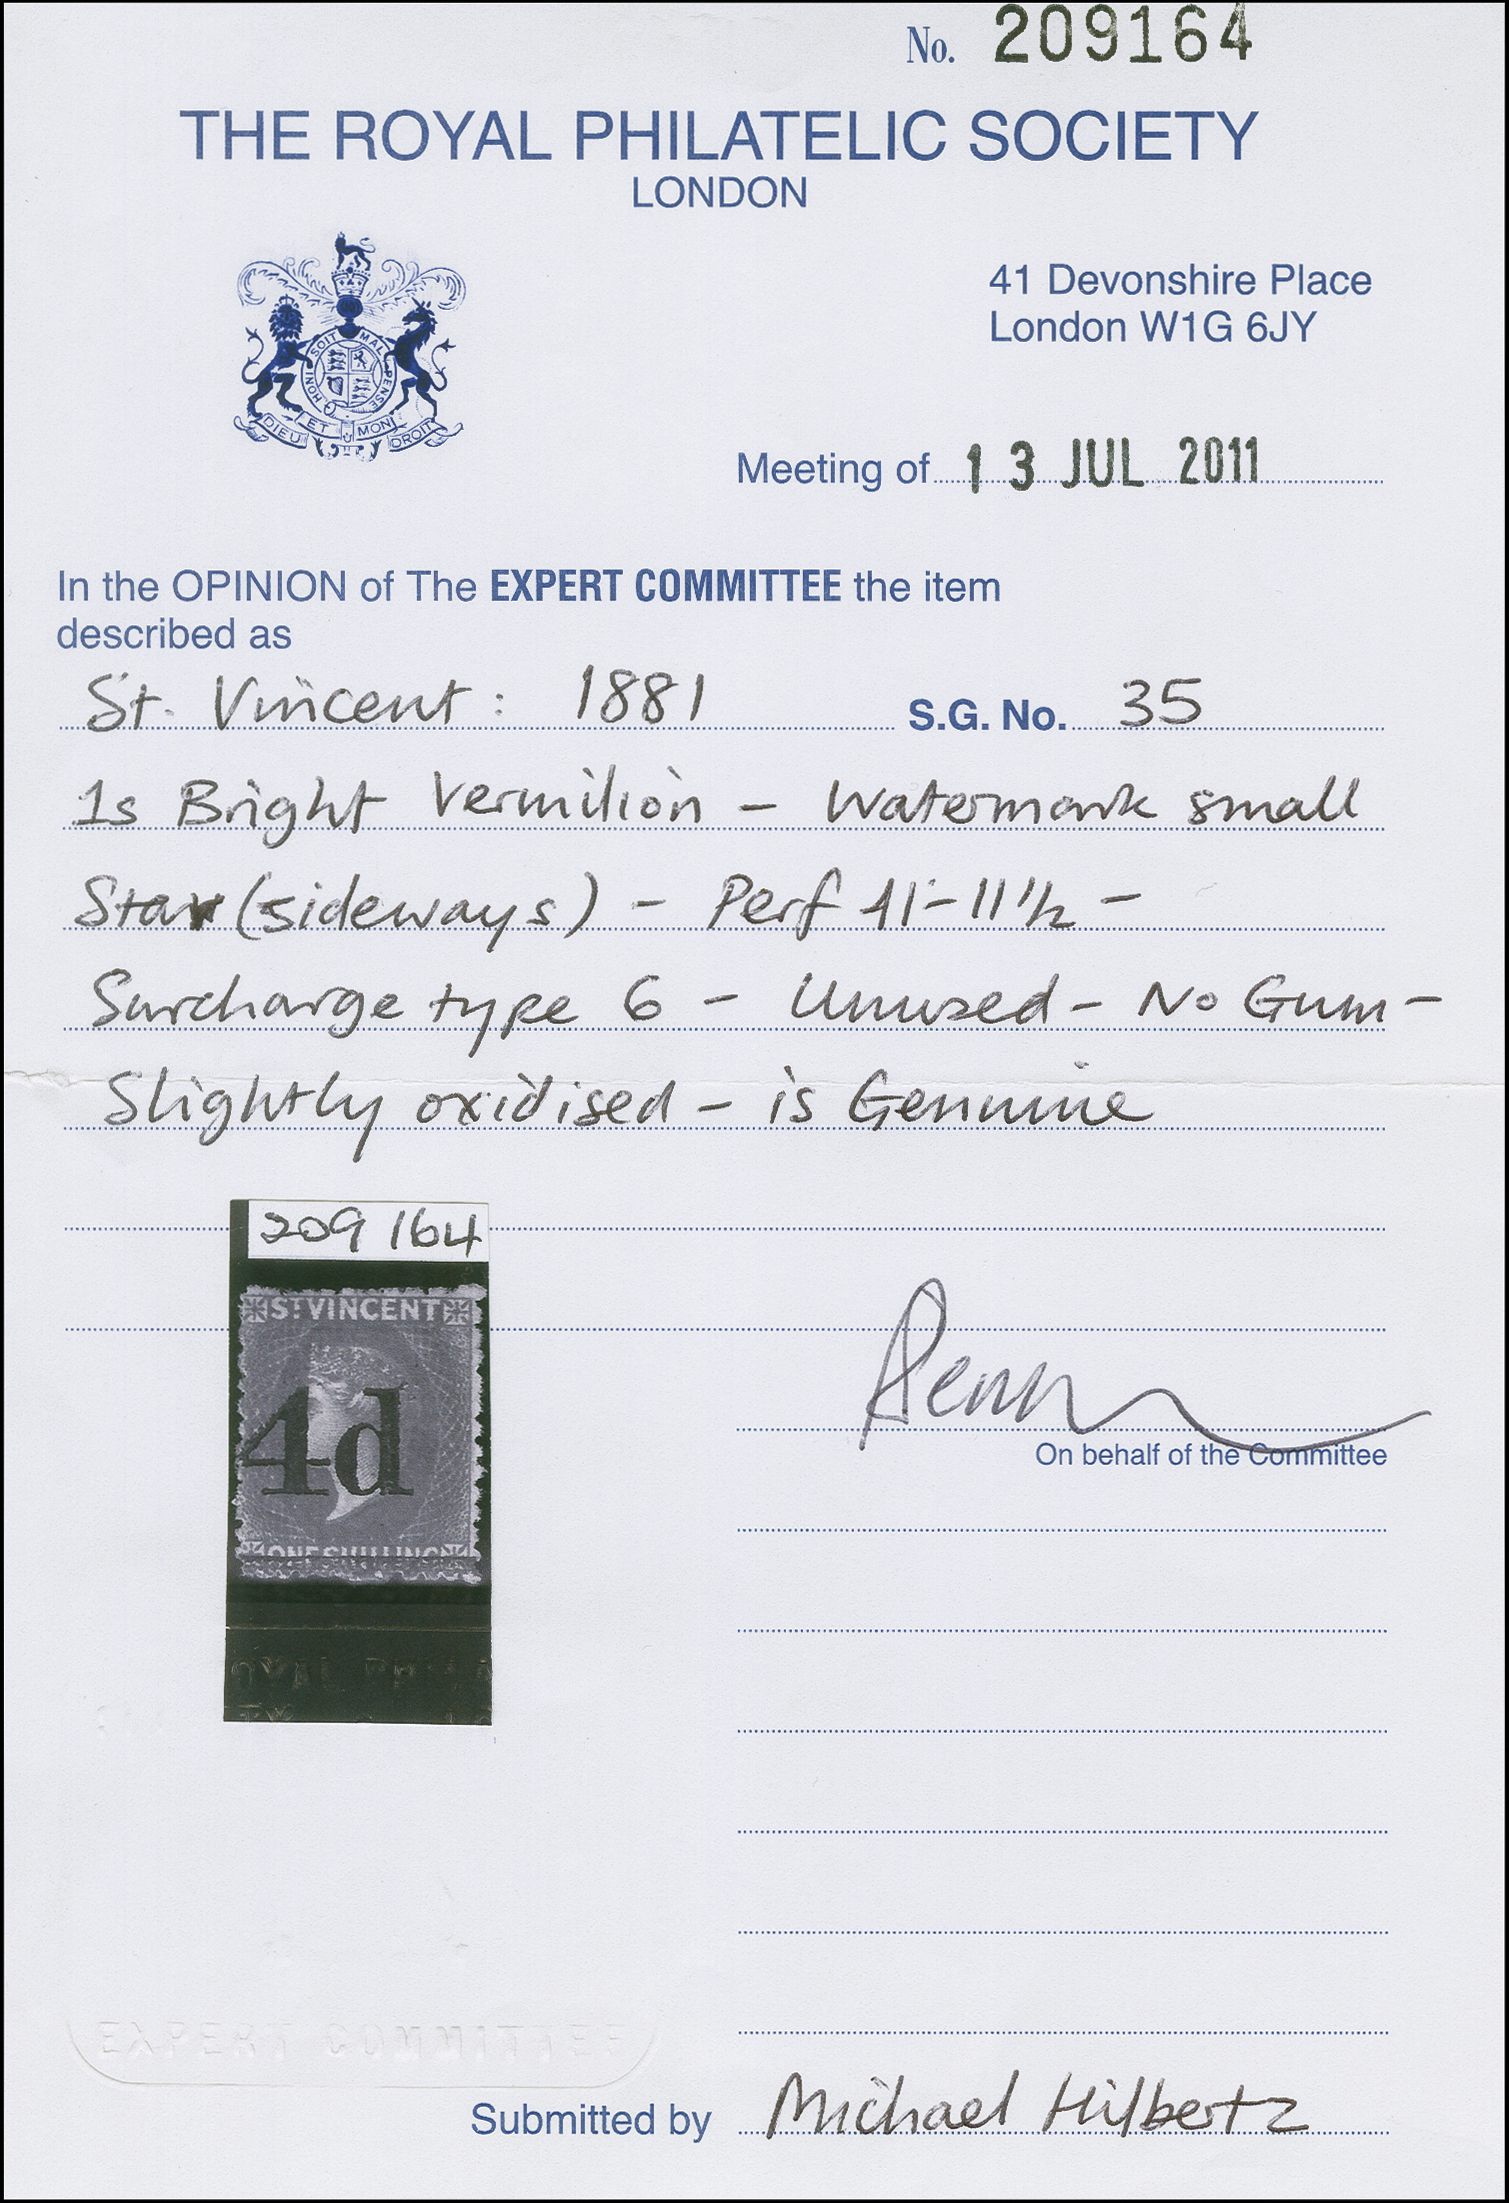 No. 209164
THE ROYAL PHILATELIC SOCIETY
LONDON
HONI SOIT MAL PENSE
DIEU ET MON DROIT
41 Devonshire Place
London W1G 6JY
Meeting of 13 JUL 2011
In the OPINION of The EXPERT COMMITTEE the item
described as
St. Vincent: 1881 S.G. No. 35
1s Bright Vermilion - Watermark small
Star (sideways) - Perf 11-11½ -
Surcharge type 6 - Unused - No Gum -
Slightly oxidised - is Genuine
209 164
ST VINCENT
4d
ONE SHILLING
On behalf of the Committee
EXPERT COMMITTEE
Submitted by Michael Hilbertz